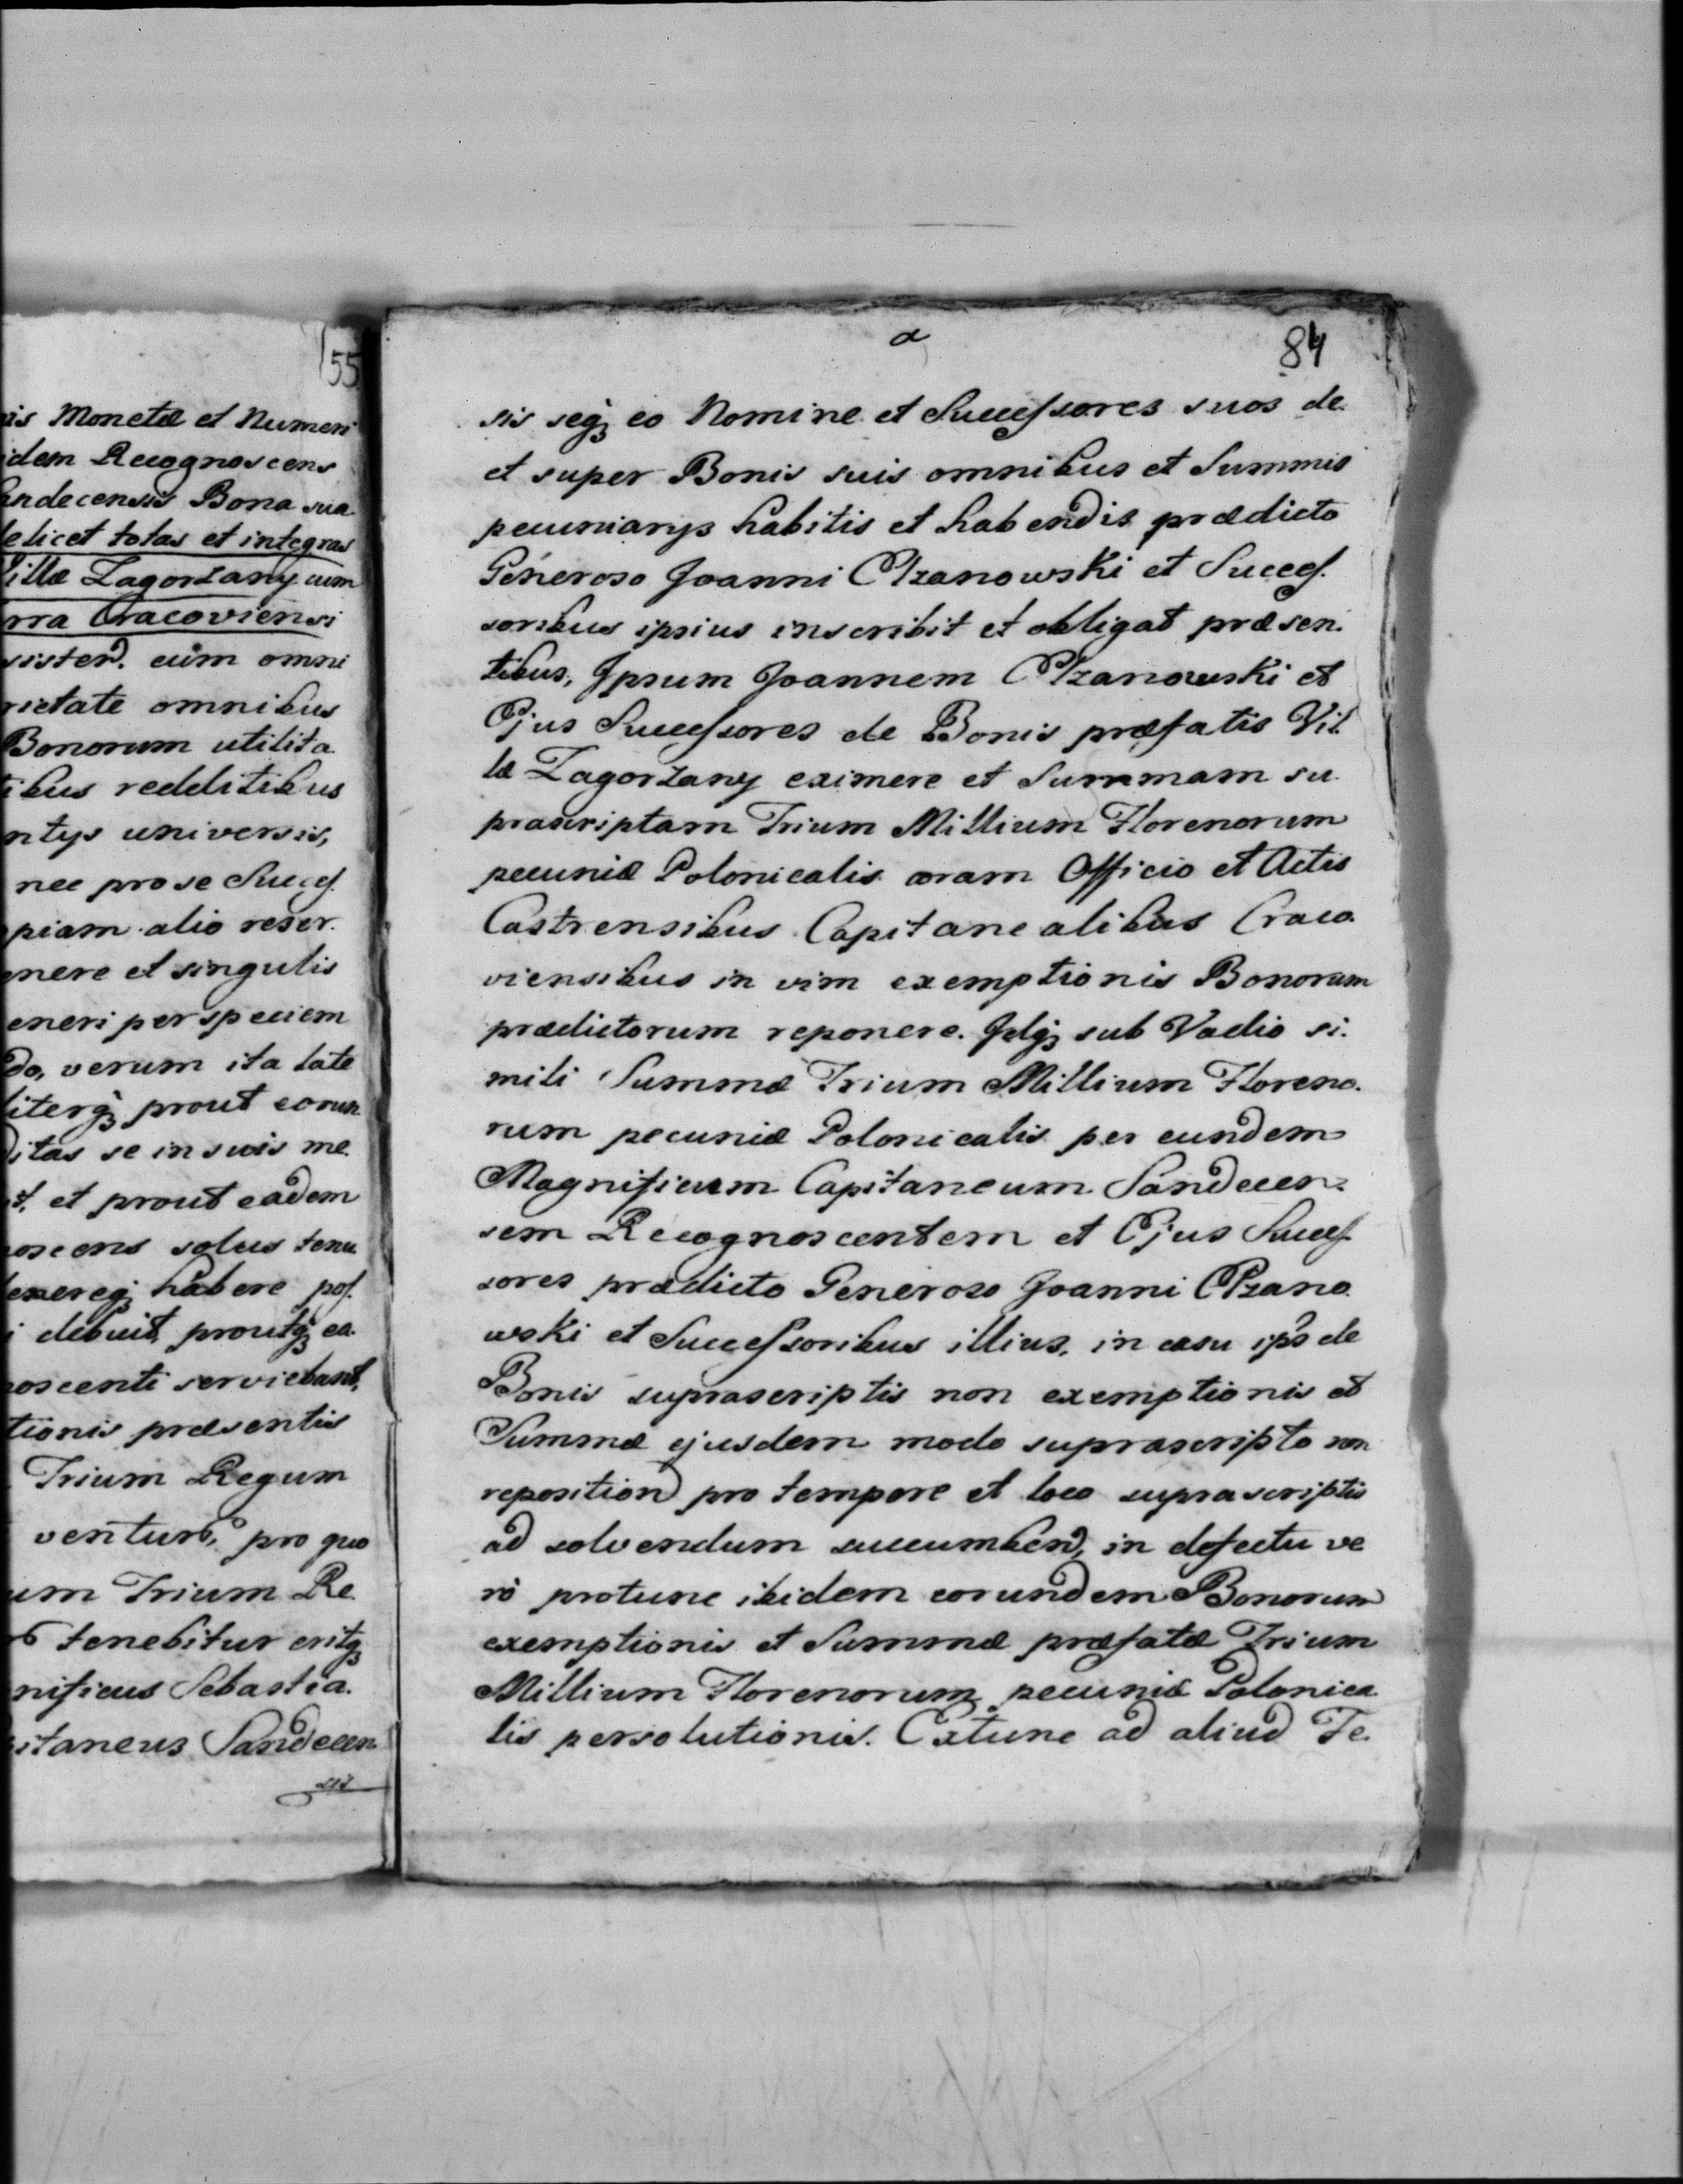 55
ais Monetæ et Numeri
idem Recognoscens
andecensis Bona sua
elicet totas et integras
Villæ Zagorzany cum
rra Cracoviensi
sistend. cum omni
rietate omnibus
Bonorum utilita
tibus redditibus
ntijs universis,
nec pro se Succes
piam alio reser.
enere et singulis
eneri per speciem
do, verum ita late
literq prout eorun
ditas se in suis me.
t, et prout eadem
noscens solus tenu
exereq habere pos.
i debuit, proutq ea.
noscenti serviebant,
tionis præsentis
Trium Regum
venturo, pro quo
um Trium Re
tenebitur eritq
nificus Sebastia.
itaneus Sandecen
sis
84
sis seq eo Nomine et Successores suos de
et super Bonis suis omnibus et Summis
pecuniarijs habitis et habendis prædicto
Generoso Joanni Chrzanowski et Succes.
soribus ipsius inscribit et obligat præsen.
tibus, Ipsum Joannem Chrzanowski et
Ejus Successores de Bonis præfatis Vil
læ Zagorzany eximere et Summam su
prascriptam Trium Millium Florenorum
pecuniæ Polonicalis coram Officio et Actis
Castrensibus Capitanealibus Craco
viensibus in vim exemptionis Bonorum
prædictorum reponere. Idq sub Vadio si.
mili Summæ Trium Millium Floreno.
rum pecuniæ Polonicalis per eundem
Magnificum Capitaneum Sandecen.
sem Recognoscentem et Ejus Succes
sores prædicto Generoso Joanni Chrzano
wski et Successoribus illius, in casu ipso de
Bonis suprascriptis non exemptionis et
Summæ ejusdem modo suprascripto non
reposition pro tempore et loco suprascriptis
ad solvendum succumbend, in defectu ve
rò protunc ibidem eorundem Bonorum
exemptionis et Summæ præfatæ Trium
Millium Florenorum pecuniæ Polonica
lis persolutionis. Extunc ad aliud Te.